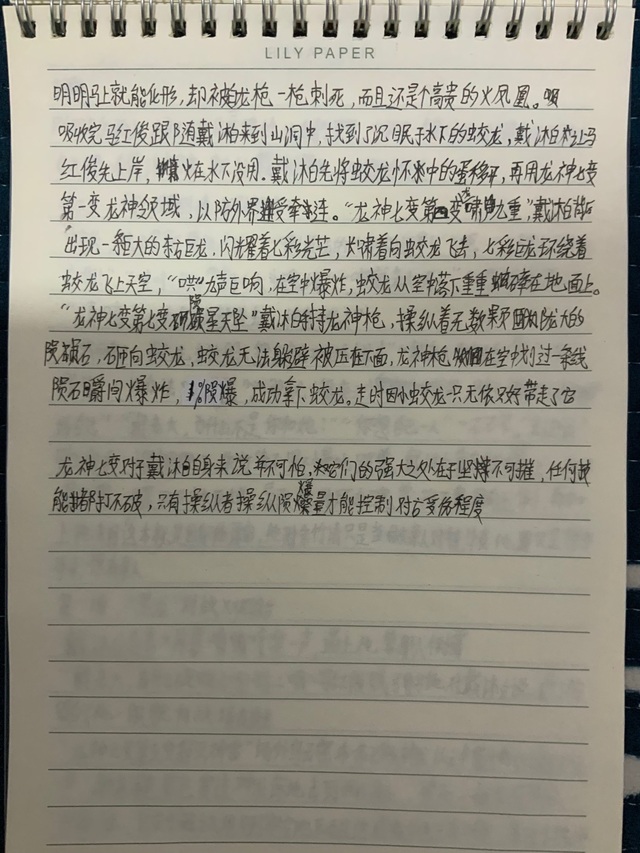 LILY PAPER
明明马上就能化形，却被龙枪一枪刺死，而且还是个高贵的火凤凰。吸
吸收完马红俊跟随戴沐白来到山洞中，找到了沉眠于水下的蛟龙，戴沐白让马
红俊先上岸，火在水下没用。戴沐白先将蛟龙怀中的蛋移开，再用龙神七变
第一变龙神领域，以防外界遭受牵连。“龙神七变第变啸九重，”戴沐白背后
出现一巨大的东方巨龙，闪耀着七彩光芒，长啸着向蛟龙飞去，七彩巨龙环绕着
蛟龙飞上天空，“哄”龙声巨响，在空中爆炸，蛟龙从空中落下重重砸在地面上。
“龙神七变第七变陨星天坠”戴沐白手持龙神枪，操纵着无数庞大的
陨石，砸向蛟龙，蛟龙无法躲避被压在下面，龙神枪在空中划过一条线
陨石瞬间爆炸，1%陨爆，成功拿下蛟龙。走时因小蛟龙一只无依只好带走了它
龙神七变对于戴沐白自身来说并不可怕，它们的强大之处在于坚不可摧，任何技
能都打不破，只有操纵者操纵陨爆量才能控制对方受伤程度